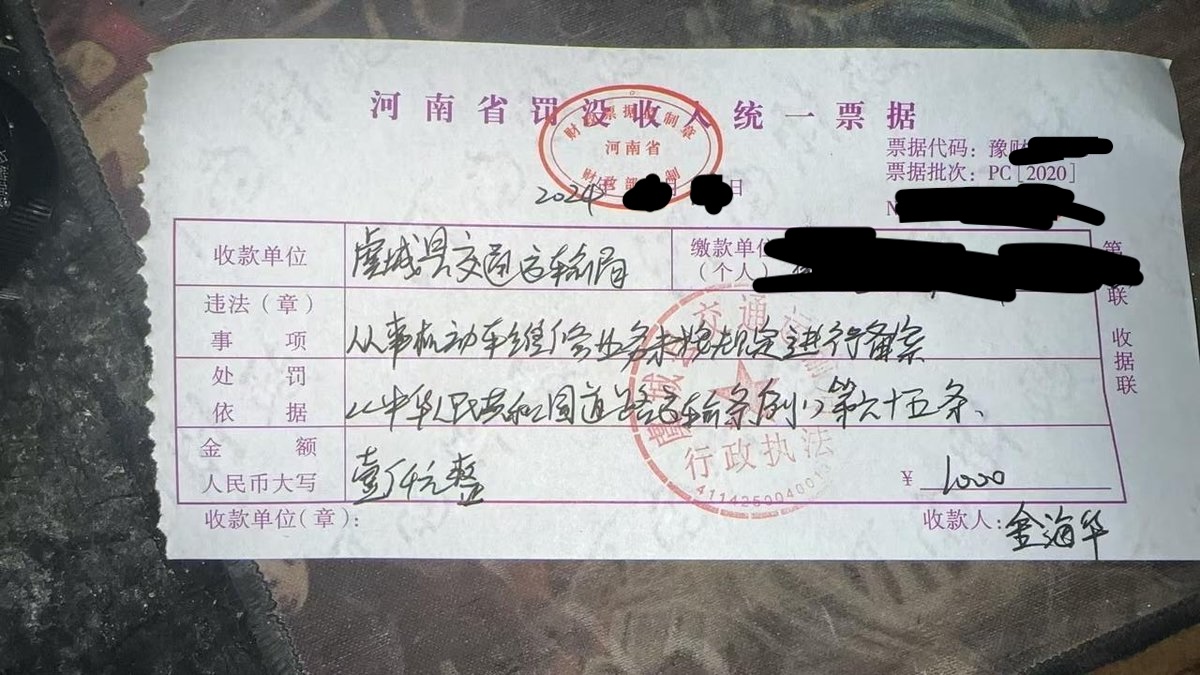 河南省罚没收入统一票据
财政票据监制章
河南省
财政部监制
票据代码：豫财
票据批次：PC[2020]
N
2024年 月 日
收款单位 虞城县交通运输局 缴款单位
（个人）
违法（章）
事项 从事机动车维修业务未按规定进行备案
处罚
依据 《中华人民共和国道路运输条例》第六十五条、
金额
人民币大写 壹仟元整 ¥ 1000
收款单位（章）： 收款人：金海华
第
联
收
据
联
行政执法